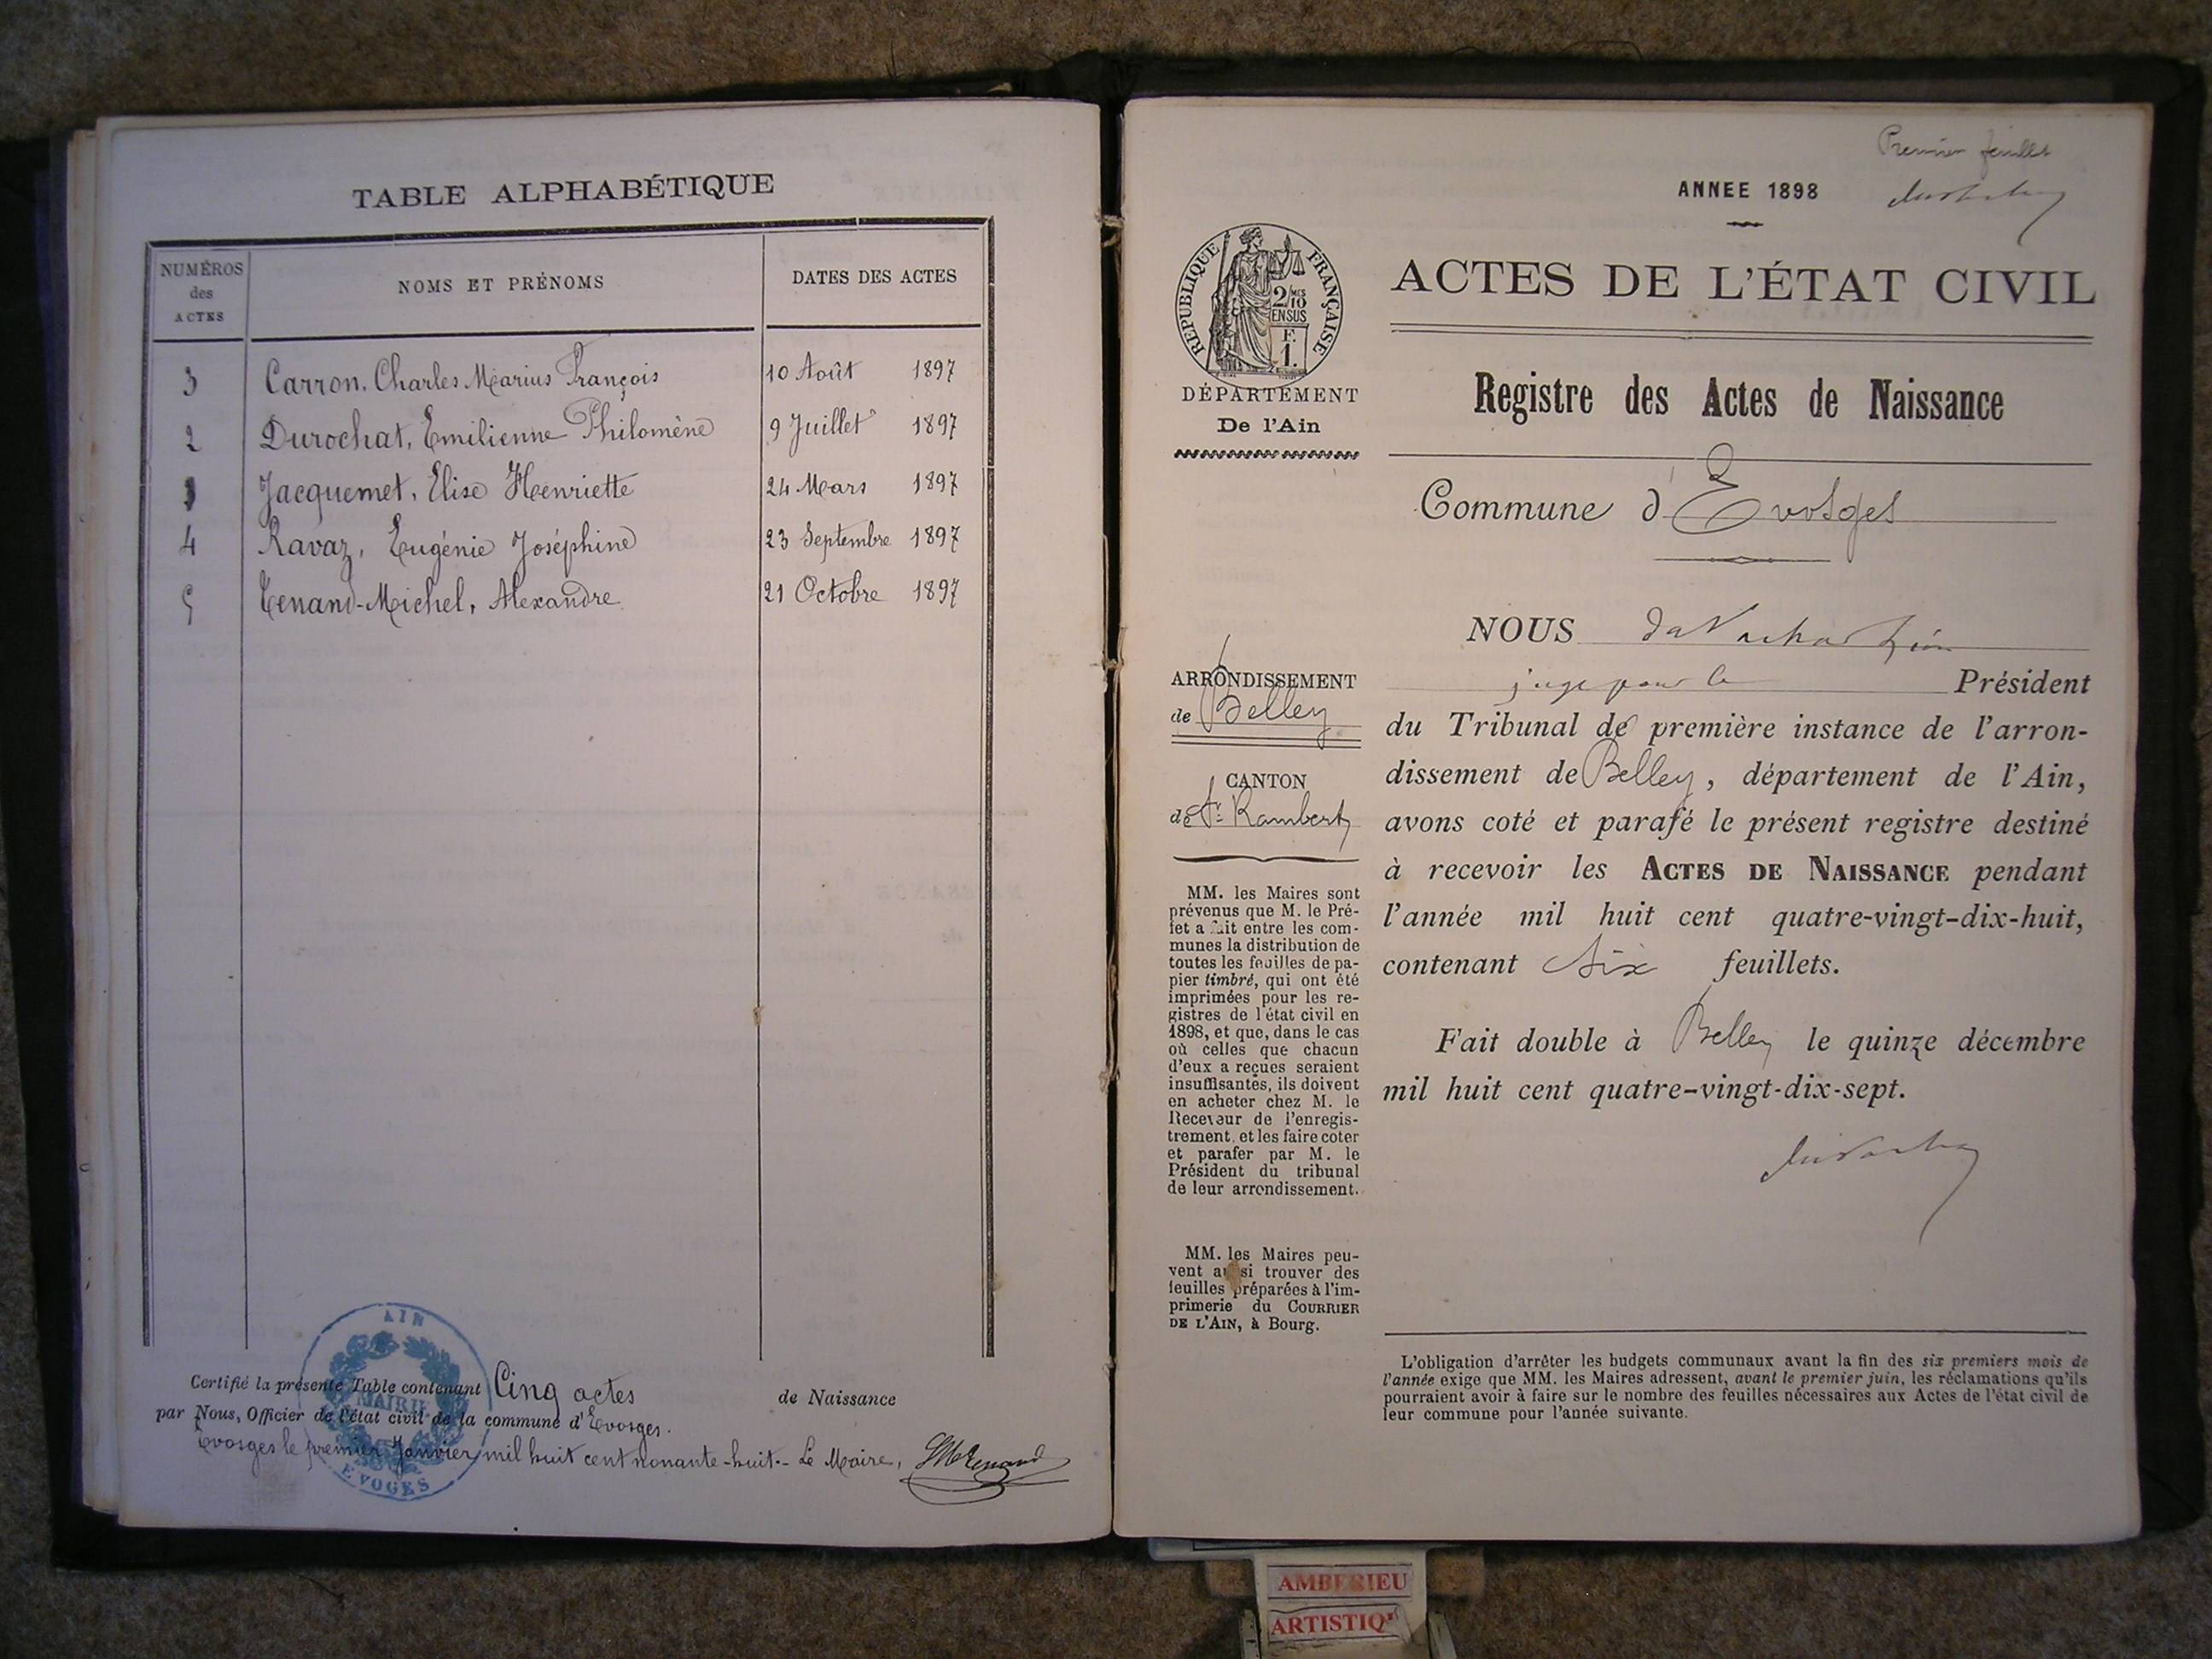 TABLE ALPHABÉTIQUE
NUMÉROS
des
ACTES
NOMS ET PRÉNOMS
DATES DES ACTES
3 Carron, Charles Marius François 10 Août 1897
2 Durochat, Emilienne Philomène 9 Juillet 1897
1 Jacquemet, Elise Henriette 24 Mars 1897
4 Ravaz, Eugénie Joséphine 23 Septembre 1897
5 Tenand-Michel, Alexandre 21 Octobre 1897
Certifié la présente Table contenant Cinq actes de Naissance
par Nous, Officier de l'état civil de la commune d'Evosges.
Evosges le premier Janvier mil huit cent nonante-huit.- Le Maire,
AIN
MAIRIE
EVOGES
Premier feuillet
ANNEE 1898
RÉPUBLIQUE FRANÇAISE
2/10
MES
EN SUS
F.
1.
DÉPARTEMENT
De l'Ain
ACTES DE L'ÉTAT CIVIL
Registre des Actes de Naissance
Commune d'Evosges
ARRONDISSEMENT
de Belley
CANTON
de St Rambert
MM. les Maires sont
prévenus que M. le Pré-
fet a fait entre les com-
munes la distribution de
toutes les feuilles de pa-
pier timbré, qui ont été
imprimées pour les re-
gistres de l'état civil en
1898, et que, dans le cas
où celles que chacun
d'eux a reçues seraient
insuffisantes, ils doivent
en acheter chez M. le
Receveur de l'enregis-
trement, et les faire coter
et parafer par M. le
Président du tribunal
de leur arrondissement.
MM. les Maires peu-
vent aussi trouver des
feuilles préparées à l'im-
primerie du COURRIER
DE L'AIN, à Bourg.
NOUS
juge pour le Président
du Tribunal de première instance de l'arron-
dissement de Belley, département de l'Ain,
avons coté et parafé le présent registre destiné
à recevoir les ACTES DE NAISSANCE pendant
l'année mil huit cent quatre-vingt-dix-huit,
contenant six feuillets.
Fait double à Belley le quinze décembre
mil huit cent quatre-vingt-dix-sept.
L'obligation d'arrêter les budgets communaux avant la fin des six premiers mois de
l'année exige que MM. les Maires adressent, avant le premier juin, les réclamations qu'ils
pourraient avoir à faire sur le nombre des feuilles nécessaires aux Actes de l'état civil de
leur commune pour l'année suivante.
AMBERIEU
ARTISTIQ